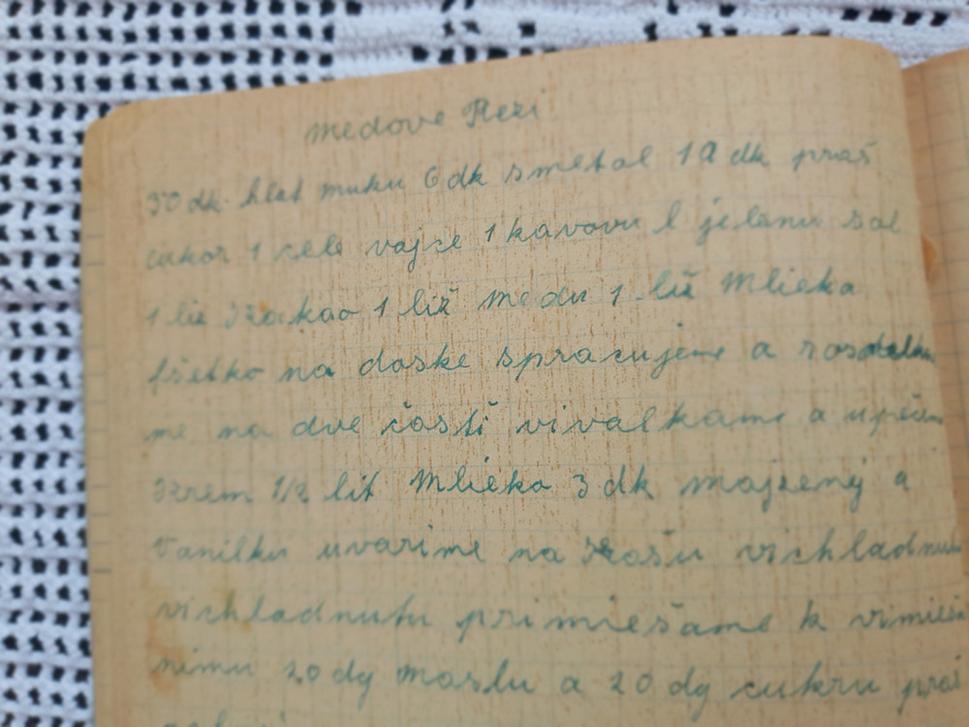 Medove Rezi
50 dk. hlat muku 6 dk smetal 1 dk praš
cukor 1 cele vajce 1 kavovu l jelenu sal
1 liž kakao 1 liž medu 1 liž Mlieka
fšetko na doske spracujeme a rosdelu
me na dve časti vivalkame a upečem
krem 1/2 lit Mlieka 3 dk majzeny a
vanilku uvarime na kašu vichladnu
vichladnutu primiešame k vimieša
nimu 20 dg Maslu a 20 dg cukru praš